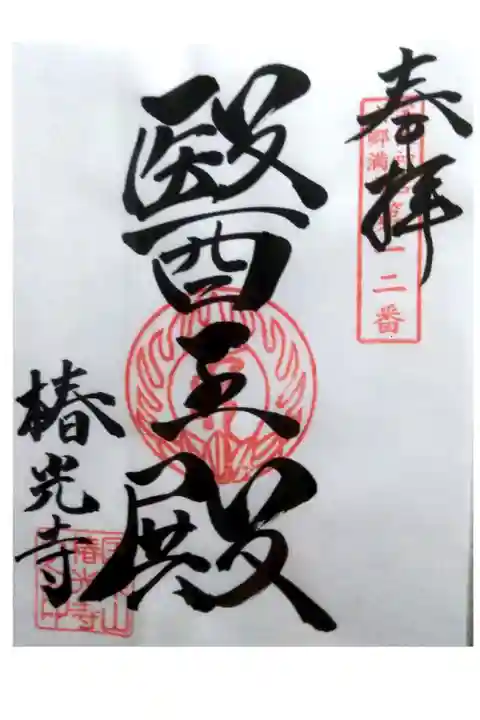 奉拝
二番
醫王殿
椿光寺
椿光寺